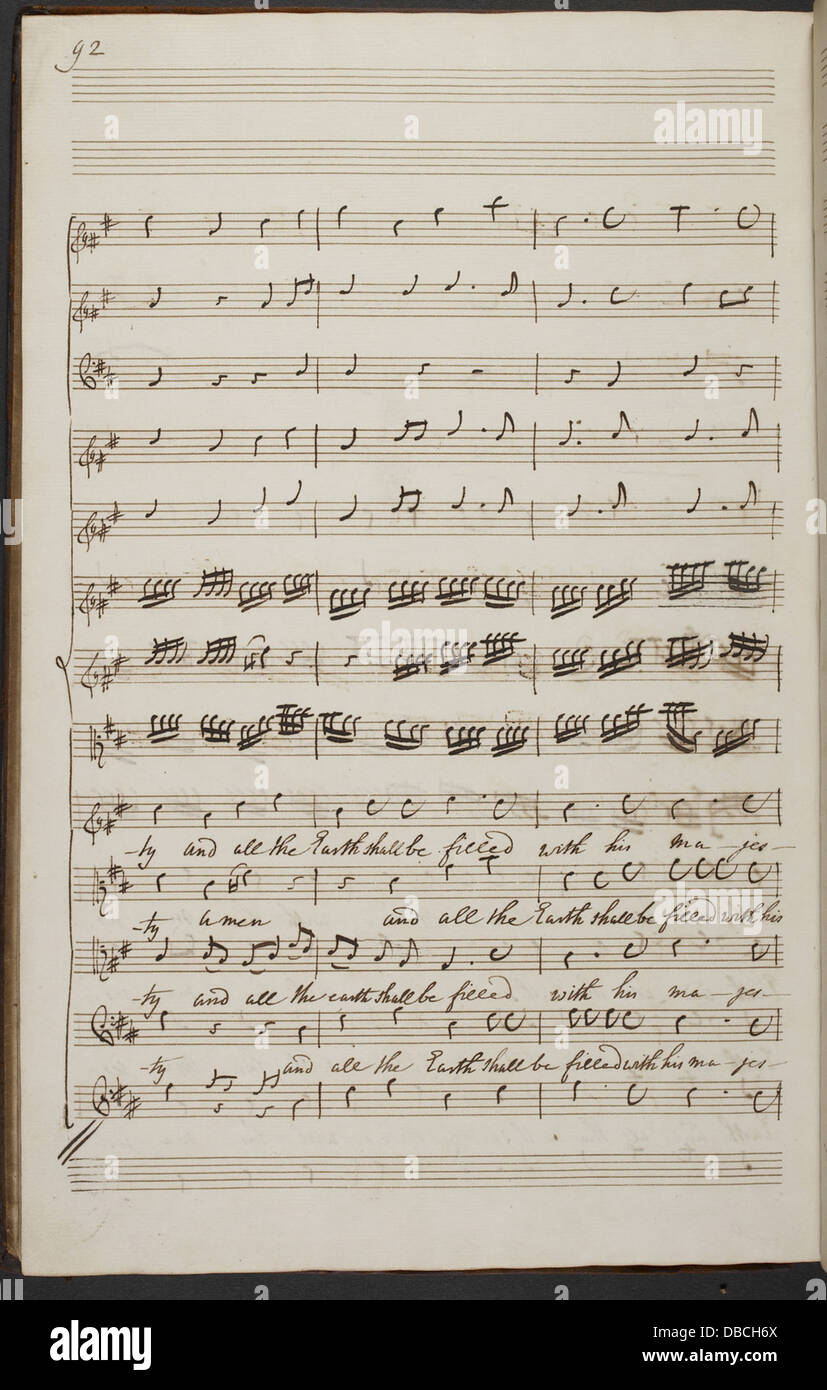 92
-ty and all the Earth shall be filled with his ma-jes-
-ty amen and all the Earth shall be filled with his
-ty and all the earth shall be filled with his ma-jes-
-ty and all the Earth shall be filled with his ma-jes-
alamy
alamy
alamy
alamy
a
a
a
a
a
alamy
Image ID: DBCH6X
www.alamy.com